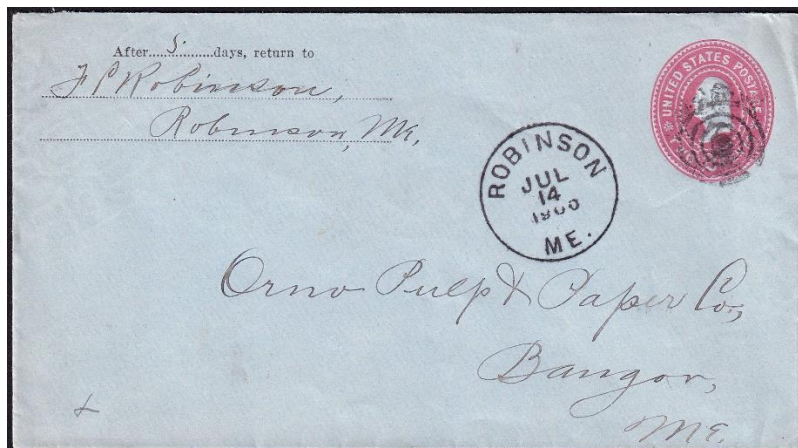 After....5.....days, return to
F P Robinson,
Robinson, Me,
UNITED STATES POSTAGE
ROBINSON
JUL
14
1900
ME.
Orno Pulp & Paper Co,
Bangor,
Me.